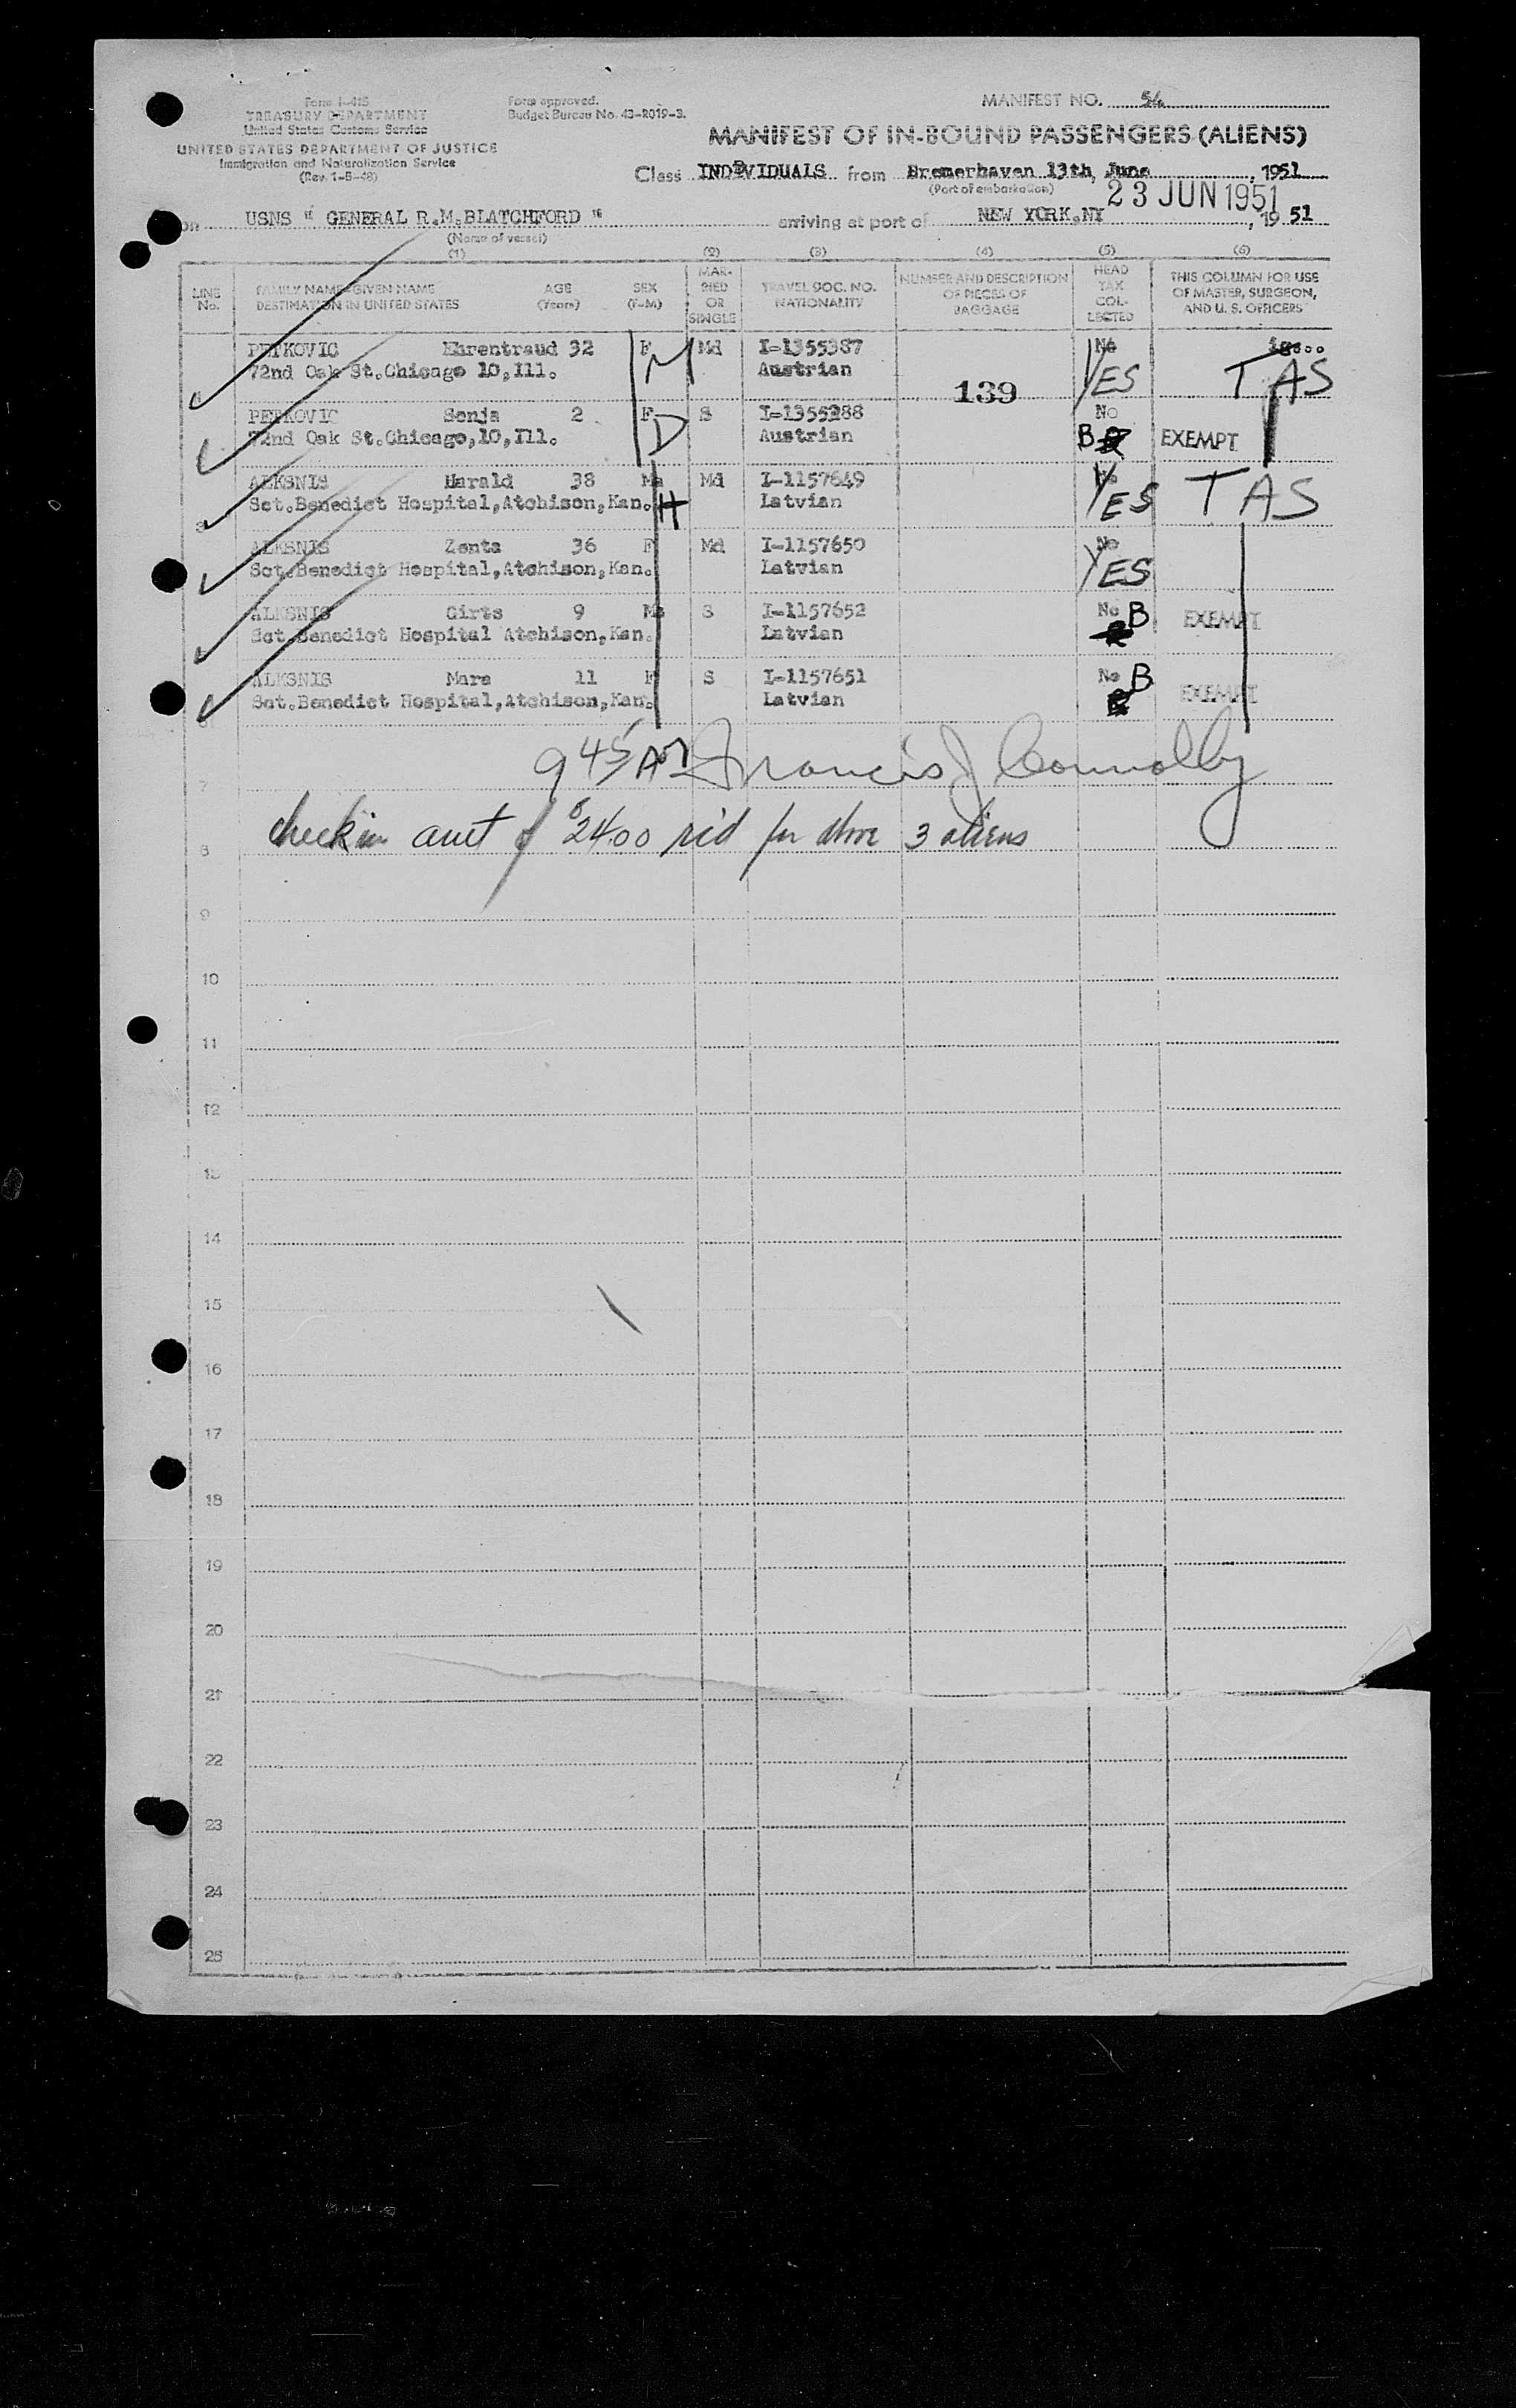 Form I-415
TREASURY DEPARTMENT
United States Customs Service
UNITED STATES DEPARTMENT OF JUSTICE
Immigration and Naturalization Service
(Rev. 1-5-48)
Form approved.
Budget Bureau No. 43-R019-3.
MANIFEST NO. 54
MANIFEST OF IN-BOUND PASSENGERS (ALIENS)
Class INDIVIDUALS from Bremerhaven 13th, June, 1951
(Port of embarkation)
23 JUN 1951
on USNS " GENERAL R.M.BLATCHFORD " arriving at port of NEW YORK.NY, 19 51
(Name of vessel)
(1) (2) (3) (4) (5) (6)
LINE No. FAMILY NAME-GIVEN NAME DESTINATION IN UNITED STATES AGE (Years) SEX (F-M) MARRIED OR SINGLE TRAVEL DOC. NO. NATIONALITY NUMBER AND DESCRIPTION OF PIECES OF BAGGAGE HEAD TAX COLLECTED THIS COLUMN FOR USE OF MASTER, SURGEON, AND U. S. OFFICERS
PETKOVIC Ehrentraud 32 F M Md I-1355387 No
72nd Oak St.Chicago 10,Ill. Austrian 139 YES TAS
PETKOVIC Sonja 2 F D S I-1355288 No
72nd Oak St.Chicago,10,Ill. Austrian B EXEMPT
3 ALKSNIS Harald 38 Ma Md I-1157649 YES TAS
Sct.Benedict Hospital,Atchison,Kan. H Latvian
ALKSNIS Zenta 36 F Md I-1157650 No
Sct.Benedict Hospital,Atchison,Kan. Latvian YES
ALKSNIS Girts 9 Ma S I-1157652 No B EXEMPT
Sct.Benedict Hospital Atchison,Kan. Latvian
6 ALKSNIS Mara 11 F S I-1157651 No B EXEMPT
Sct.Benedict Hospital,Atchison,Kan. Latvian
7 9 45 AM Francis J Connolly
8 check in amt of $2400 rec'd for above 3 aliens
9
10
11
12
13
14
15
16
17
18
19
20
21
22
23
24
25